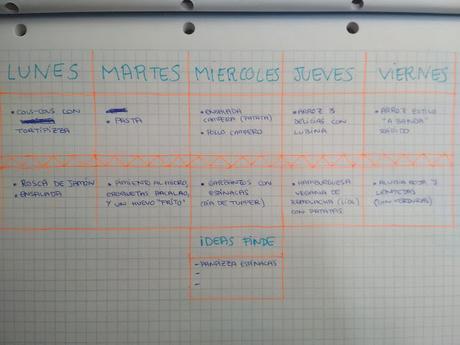 LUNES
MARTES
MIERCOLES
JUEVES
VIERNES
• COUS-COUS CON
TORTIPIZZA
• PASTA
• ENSALADA
CAMPERA (PATATA)
• POLLO CAMPERO
• ARROZ 3
DELICIAS CON
LUBINA
• ARROZ ESTILO
"A BANDA"
RÁPIDO
• ROSCA DE JAMÓN
• ENSALADA
• PIMIENTO AL MICRO,
CROQUETAS BACALAO,
Y UN HUEVO "FRITO"
• GARBANZOS CON
ESPINACAS
(DÍA DE TUPPER)
• HAMBURGUESA
VEGANA DE
REMOLACHA (LIDL)
CON PATATAS
• ALUBIA ROJA Y
LENTEJAS
(CON VERDURAS)
IDEAS FINDE
- PANIZZA ESPINACAS
-
-